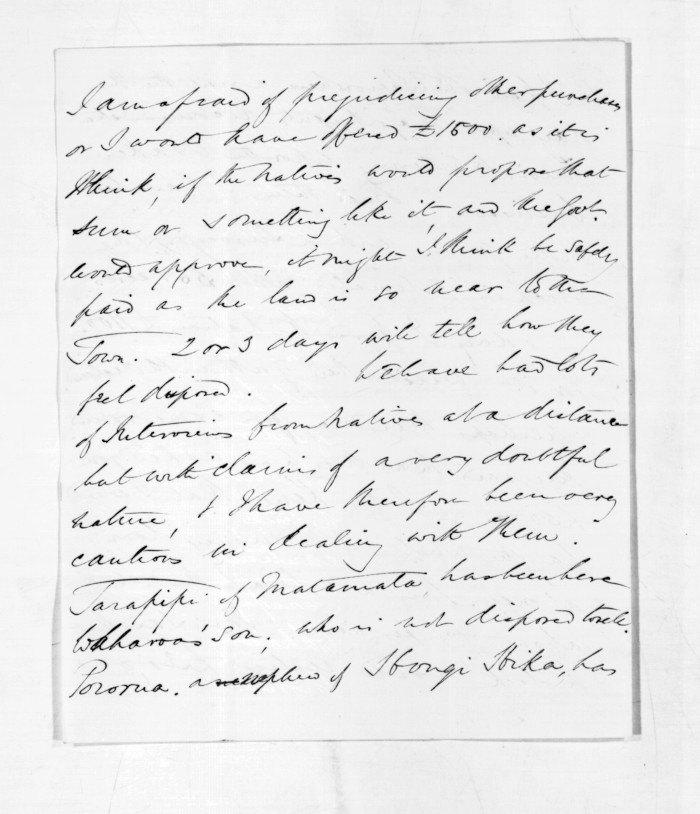 I am afraid of prejudicing other purchases
or I would have offered £1500. as it is
I think, if the natives would propose that
sum or something like it, and the Govt.
would approve, it might, I think be safely
paid as the land is so near to the
Town. 2 or 3 days will tell how they
feel disposed. We have had lots
of Interviews from Natives at a distance
but with claims of a very doubtful
nature, & I have therefore been very
cautious in dealing with them.
Tarapipi of Matamata has been here
Waharoa's son, who is not disposed to sell.
Pororua. a nephew of Hongi Hika, has